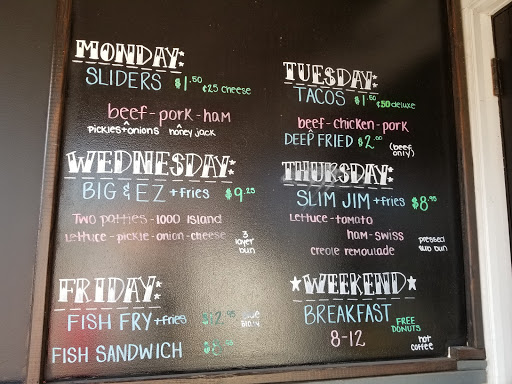 MONDAY:
SLIDERS $1.50 ¢25 cheese
beef - pork - ham
pickles+onions honey jack
TUESDAY:
TACOS $1.50 ¢50 deluxe
beef - chicken - pork
DEEP FRIED $2.00 (beef only)
WEDNESDAY:
BIG & EZ + fries $9.25
Two patties - 1000 island
lettuce - pickle - onion - cheese - 3 layer bun
THURSDAY:
SLIM JIM + fries $8.95
lettuce - tomato
ham - swiss
creole remoulade
pressed sub bun
FRIDAY:
FISH FRY + fries $12.95
FISH SANDWICH
WEEKEND
BREAKFAST
8-12
FREE DONUTS
hot coffee